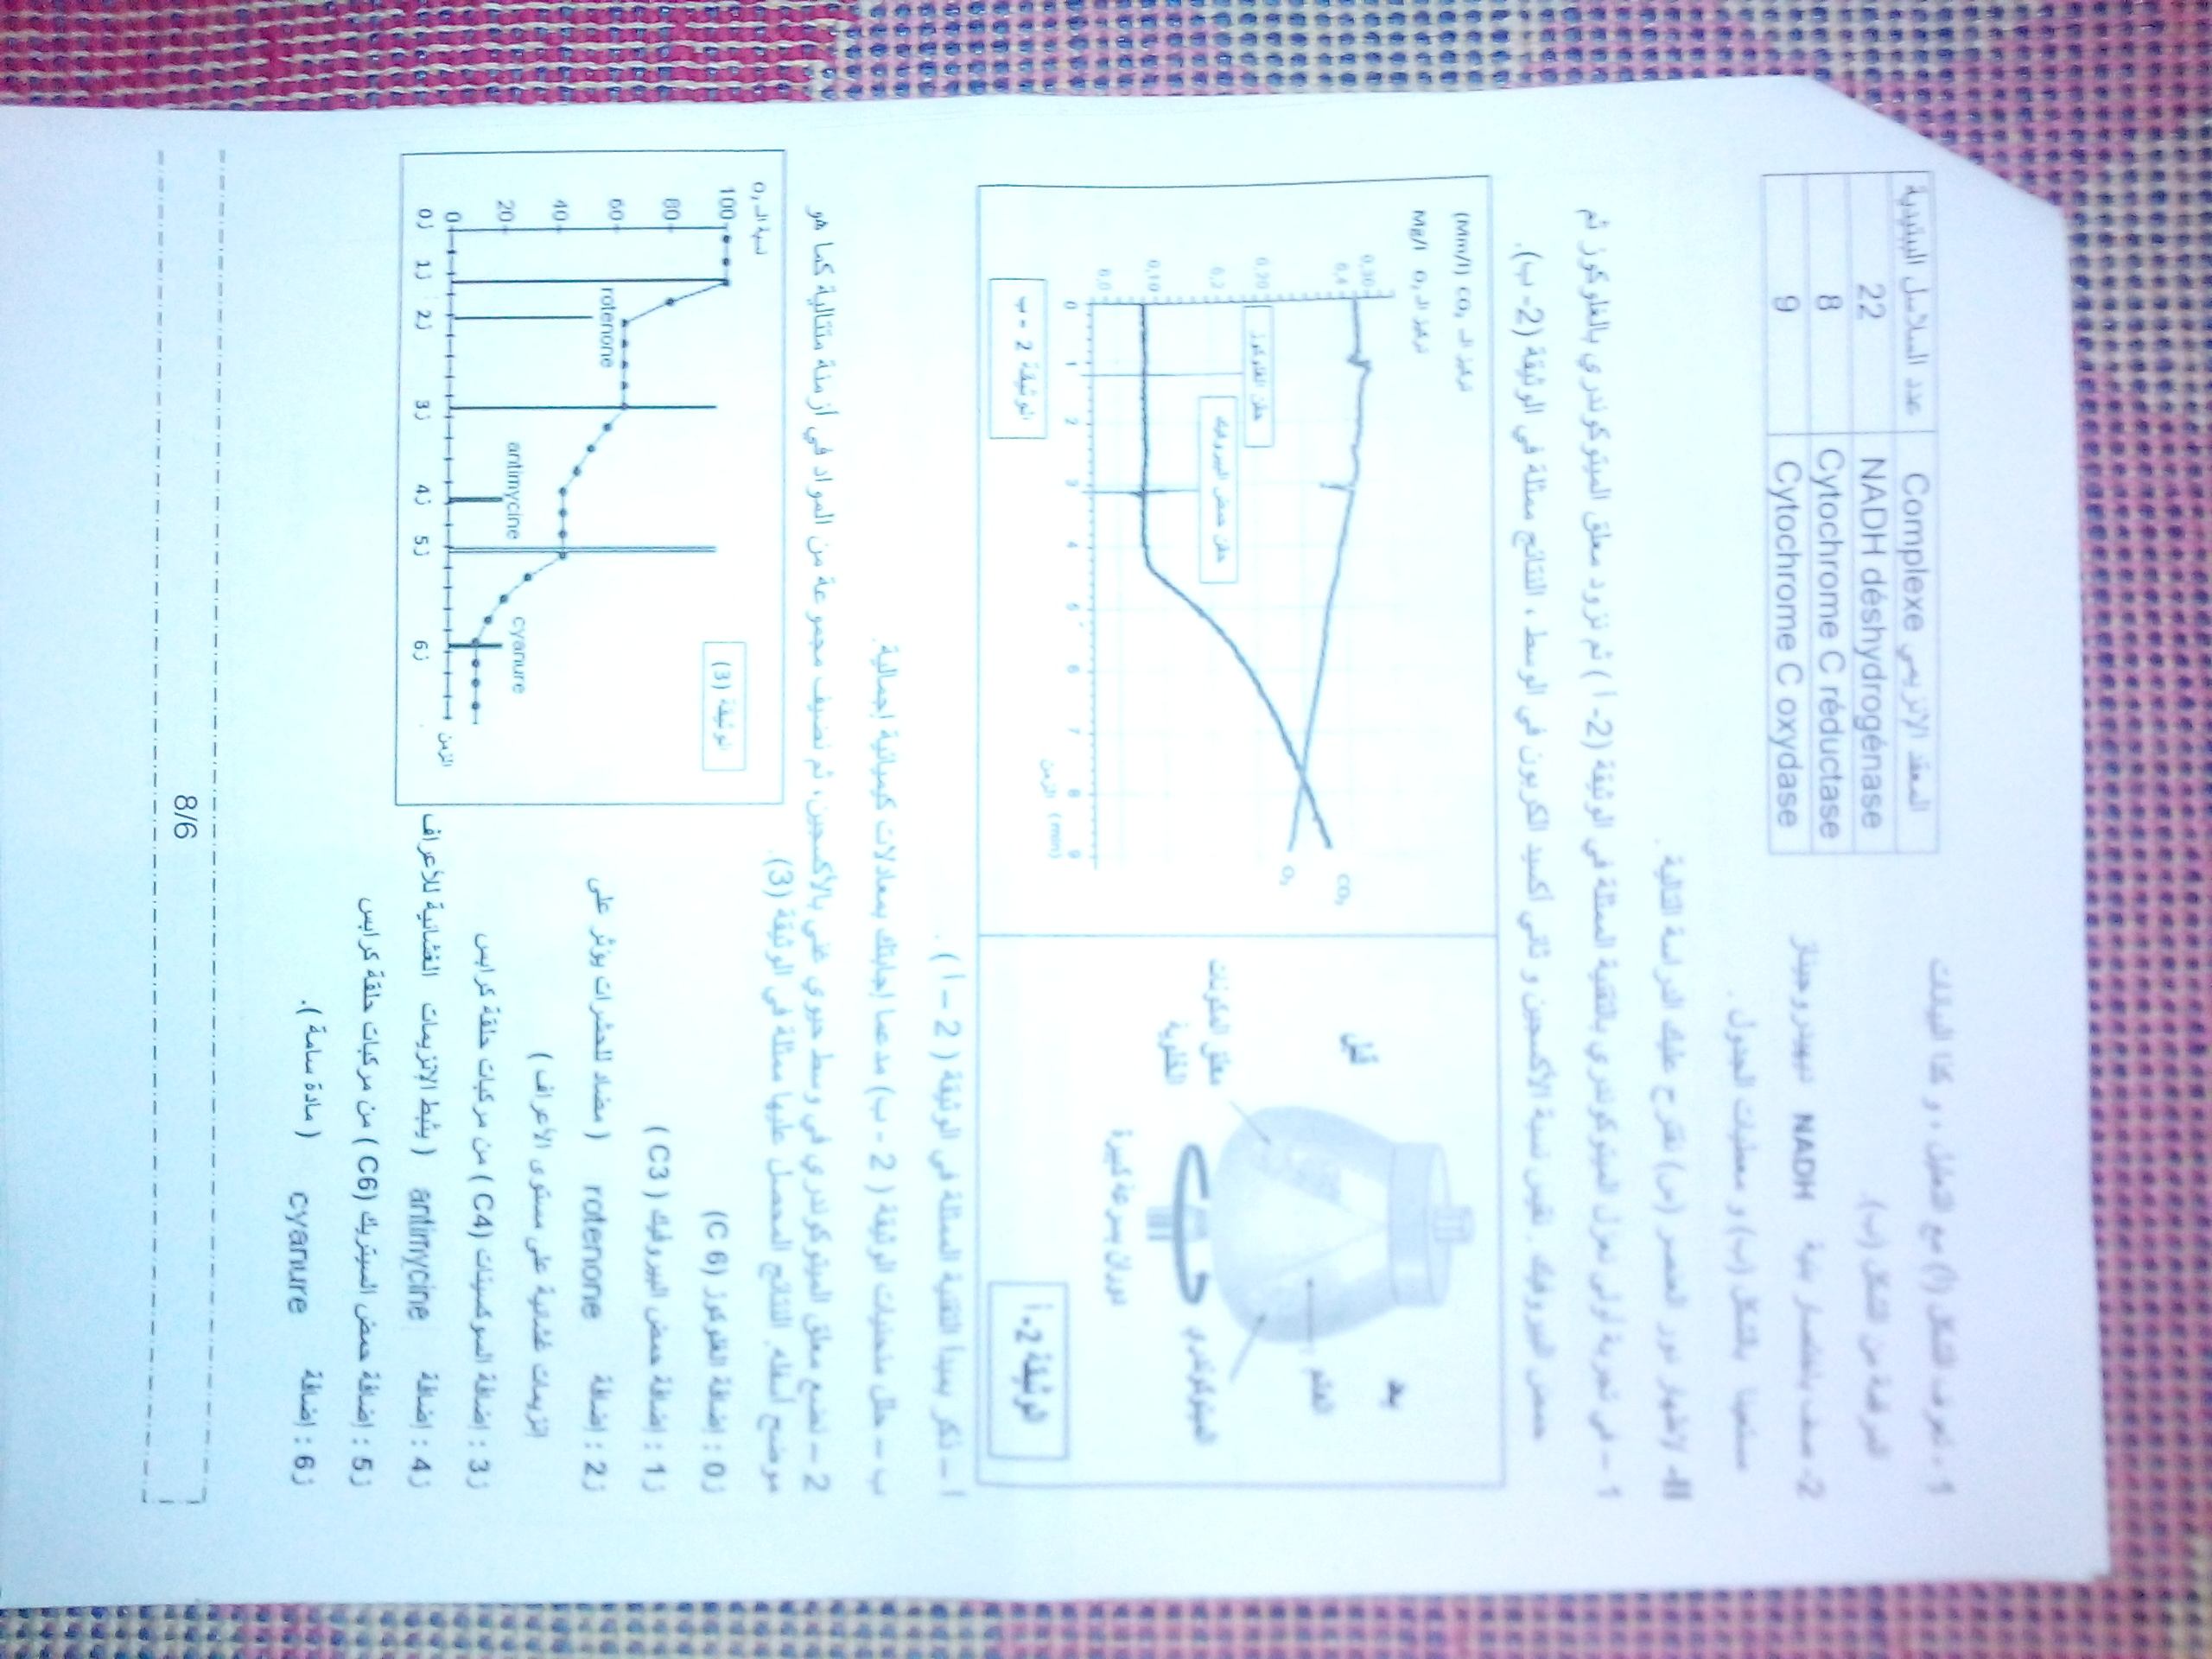 عدد السلاسل الببتيدية	المعقد الإنزيمي Complexe
22	NADH déshydrogénase
8	Cytochrome C réductase
9	Cytochrome C oxydase
1 - تعرف الشكل (أ) مع التعليل ، و كذا البيانات
المرقمة من الشكل (ب).
2- صف باختصار بنية NADH ديهيدروجيناز
مستعينا بالشكل (ب) و معطيات الجدول .
II- لإظهار دور العنصر (س) نقترح عليك الدراسة التالية .
1 – في تجربة أولى نعزل الميتوكوندري بالتقنية الممثلة في الوثيقة (2- أ) ثم نزود معلق الميتوكوندري بالغلوكوز ثم
حمض البيروفيك . نقيس نسبة الأكسجين و ثاني أكسيد الكربون في الوسط ، النتائج ممثلة في الوثيقة (2- ب).
تركيز الـ CO₂ (Mm/l)
تركيز الـ O₂ Mg/l
0,30
0,4
0,20
0,2
0,10
0,0
حقن الغلوكوز
حقن حمض البيروفيك
0 1 2 3 4 5 6 7 8 9
الزمن (min)
CO₂
O₂
الوثيقة 2 - ب
قبل
بعد
معلق المكونات الخلوية
العائم
الميتوكوندري
دوران بسرعة كبيرة
الوثيقة 2- أ
أ – ذكر بمبدأ التقنية الممثلة في الوثيقة ( 2 – أ ) .
ب – حلل منحنيات الوثيقة ( 2 - ب) مدعما إجابتك بمعادلات كيميائية إجمالية.
2 – نضع معلق الميتوكوندري في وسط حيوي غني بالأكسجين، ثم نضيف مجموعة من المواد في أزمنة متتالية كما هو
موضح أسفله. النتائج المحصل عليها ممثلة في الوثيقة (3).
نسبة الـ O₂
100
80
60
40
20
0
rotenone
antimycine
cyanure
ز0 ز1 ز2 ز3 ز4 ز5 ز6
الزمن
الوثيقة (3)
ز0 : إضافة الغلوكوز (C 6)
ز1 : إضافة حمض البيروفيك ( C3 )
ز2 : إضافة rotenone ( مضاد للحشرات يؤثر على
إنزيمات غشائية على مستوى الأعراف )
ز3 : إضافة السوكسينات (C4 ) من مركبات حلقة كرابس
ز4 : إضافة antimycine ( يثبط الإنزيمات الغشائية للأعراف
ز5 : إضافة حمض السيتريك (C6 ) من مركبات حلقة كرابس
ز6 : إضافة cyanure ( مادة سامة ).
8/6